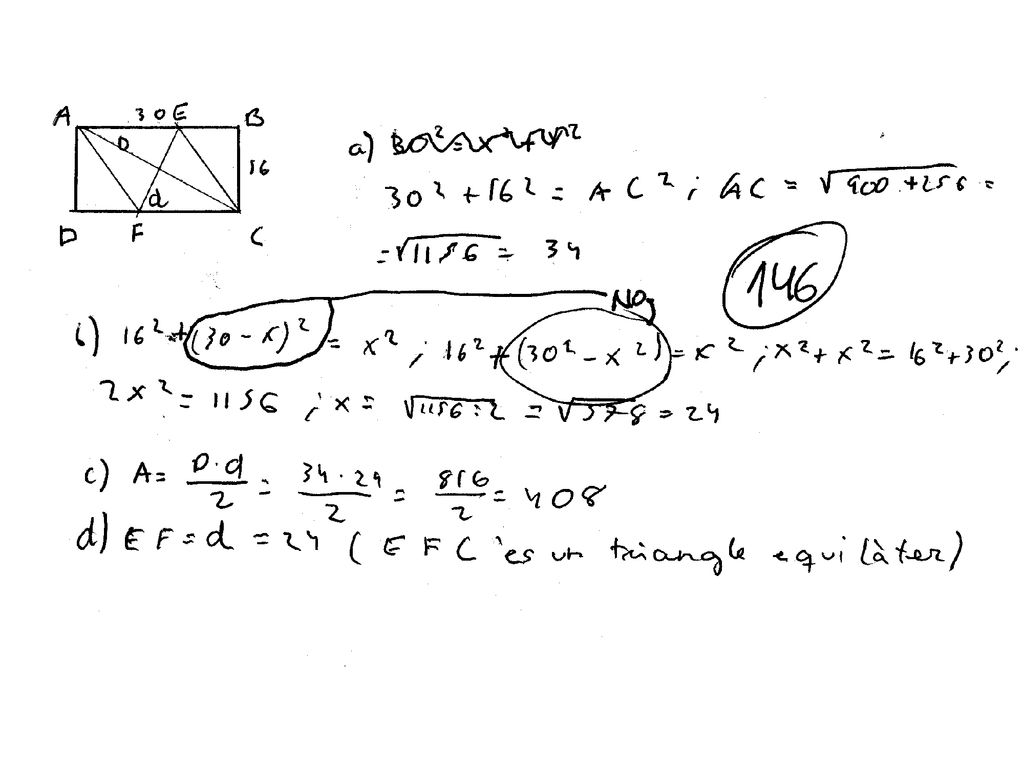 A 30 E B
D 16
d
D F C
a)
30² + 16² = AC² ; AC = √900 + 256 =
= √1156 = 34
146
NO
b) 16² + (30 - x)² = x² ; 16² + (30² - x²) = x² ; x² + x² = 16² + 30² ;
2x² = 1156 ; x = √1156:2 = √578 = 24
c) A = D·d/2 = 34·24/2 = 816/2 = 408
d) EF = d = 24 (EFC és un triangle equilàter)